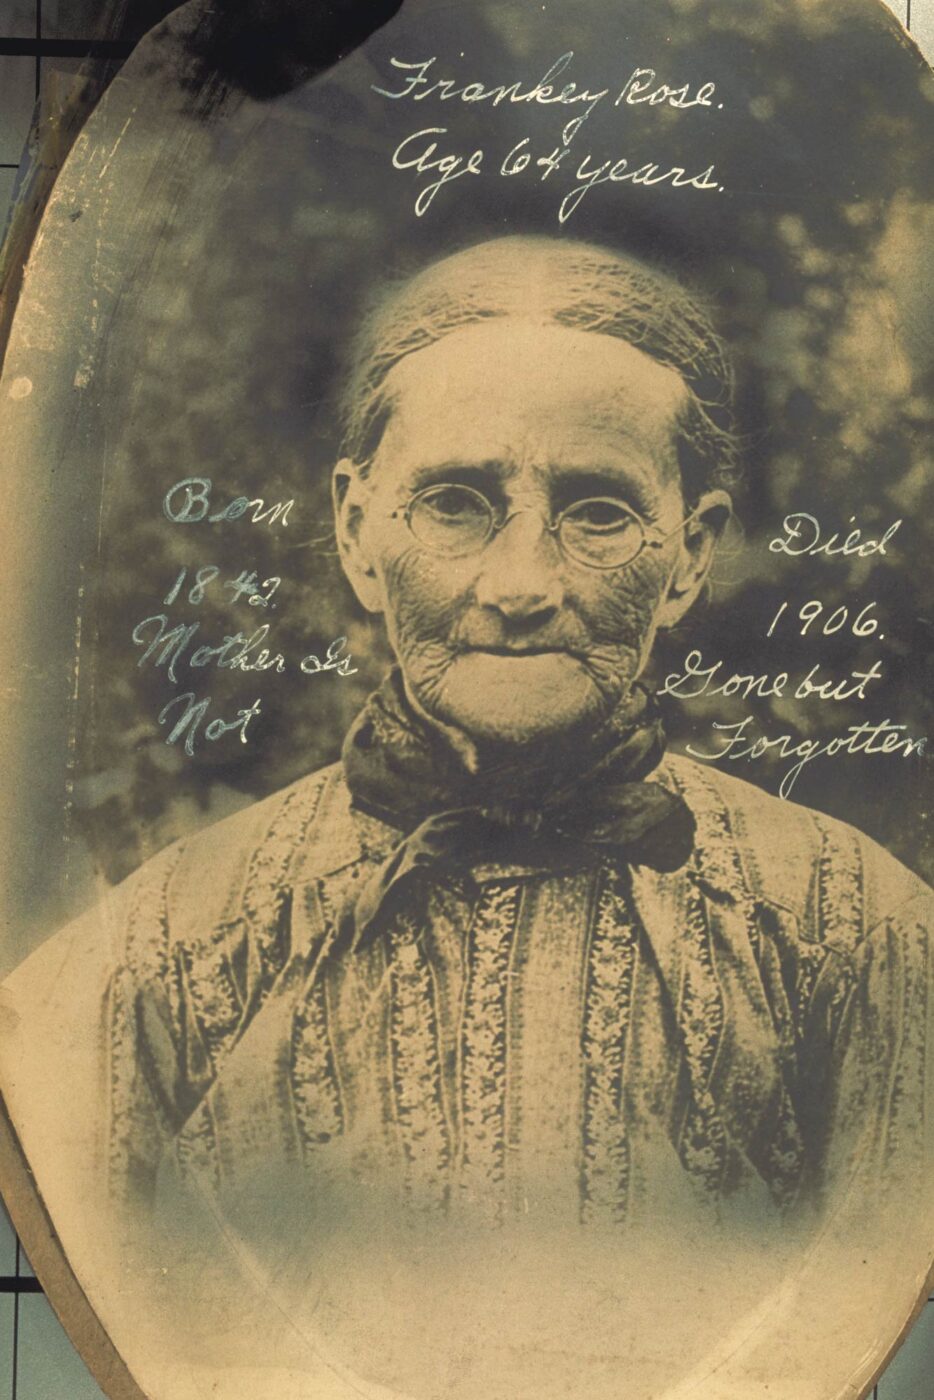 Frankey Rose.
Age 64 years.
Born
1842.
Mother Is
Not
Died
1906.
Gone but
Forgotten